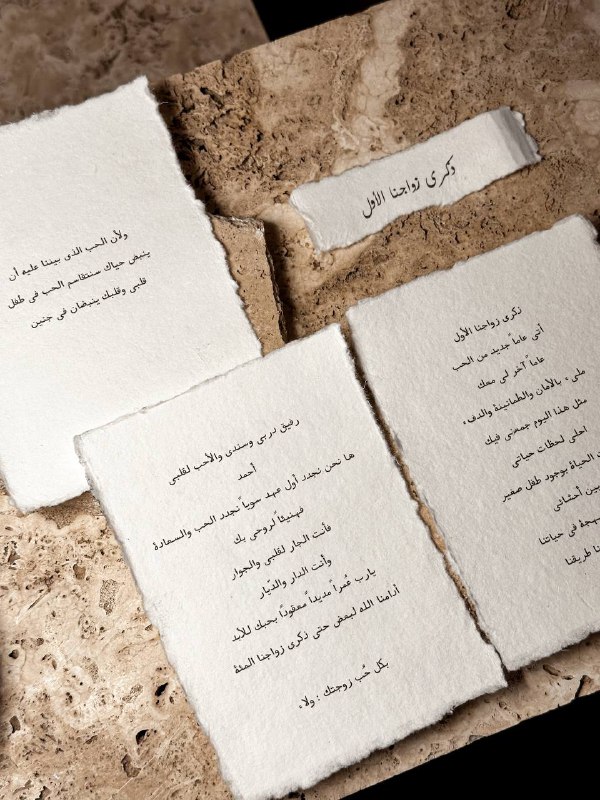 ذكرى زواجنا الأول
ولأن الحب الذي بيننا عليه أن
ينبض حياك سنتقاسم الحب في طفل
قلبي وقلبك ينبضان في جنين
ذكرى زواجنا الأول
أتى عاماً جديد من الحب
عاماً آخر لي معك
مليء بالأمان والطمأنينة والدفء
مثل هذا اليوم جمعني فيك
احلى لحظات حياتي
الحياة بوجود طفل صغير
بين أحشائي
في حياتنا
طريقنا
رفيق دربي وسندي والأحب لقلبي
أحمد
ها نحن نجدد أول عهد سوياً نجدد الحب والسعادة
فهنيئاً لروحي بك
فأنت الجار لقلبي والجوار
وأنت الدار والديار
يارب عُمراً مديداً معقودًا بحبك للأبد
أدامنا الله لبعض حتى ذكرى زواجنا المئة
بكل حُب زوجتك : ولاء